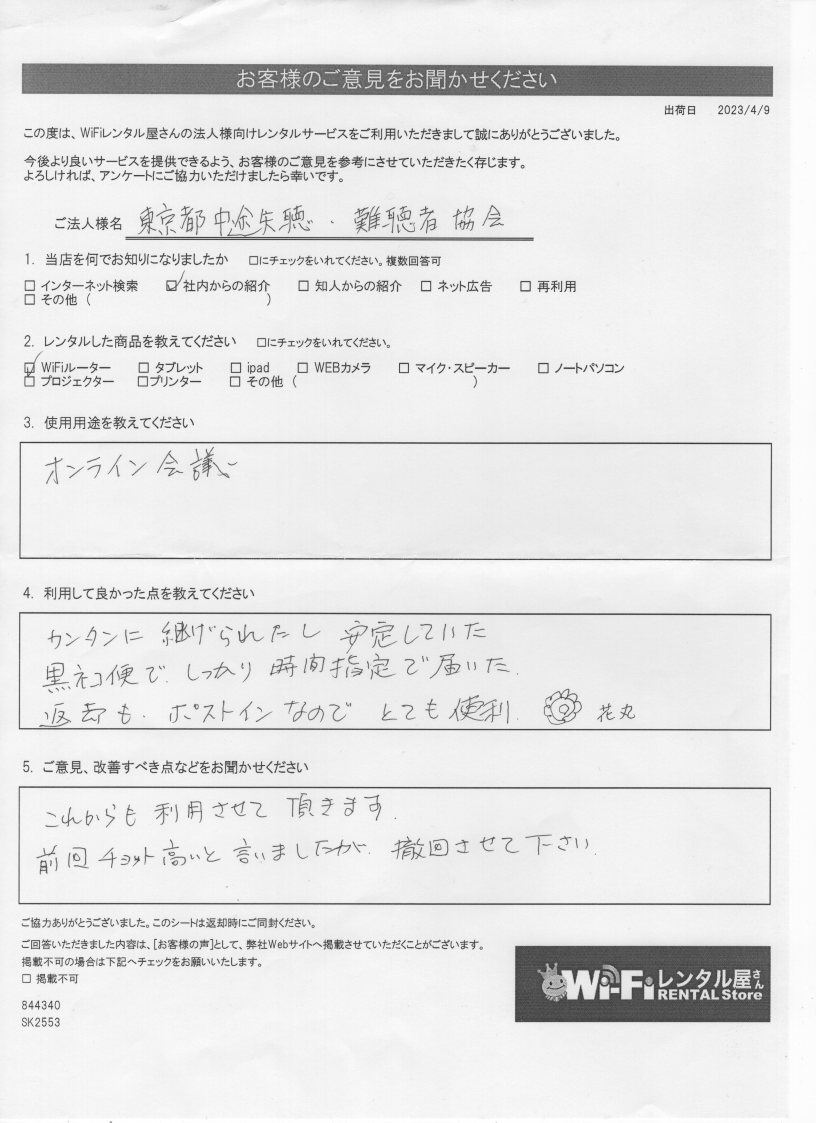 お客様のご意見をお聞かせください
出荷日 2023/4/9
この度は、WiFiレンタル屋さんの法人様向けレンタルサービスをご利用いただきまして誠にありがとうございました。
今後より良いサービスを提供できるよう、お客様のご意見を参考にさせていただきたく存じます。
よろしければ、アンケートにご協力いただけましたら幸いです。
ご法人様名 東京都中途失聴・難聴者協会
1. 当店を何でお知りになりましたか □にチェックをいれてください。複数回答可
□ インターネット検索 ☑ 社内からの紹介 □ 知人からの紹介 □ ネット広告 □ 再利用
□ その他 ( )
2. レンタルした商品を教えてください □にチェックをいれてください。
☑ WiFiルーター □ タブレット □ ipad □ WEBカメラ □ マイク・スピーカー □ ノートパソコン
□ プロジェクター □プリンター □ その他 ( )
3. 使用用途を教えてください
オンライン会議
4. 利用して良かった点を教えてください
カンタンに継げられたし 安定していた
黒ネコ便で.しっかり時間指定で届いた.
返却も.ポストインなので とても便利. 花丸
5. ご意見、改善すべき点などをお聞かせください
これからも利用させて頂きます.
前回チョット高いと言いましたが.撤回させて下さい.
ご協力ありがとうございました。このシートは返却時にご同封ください。
ご回答いただきました内容は、[お客様の声]として、弊社Webサイトへ掲載させていただくことがございます。
掲載不可の場合は下記へチェックをお願いいたします。
□ 掲載不可
844340
SK2553
Wi-Fiレンタル屋さん
RENTAL Store